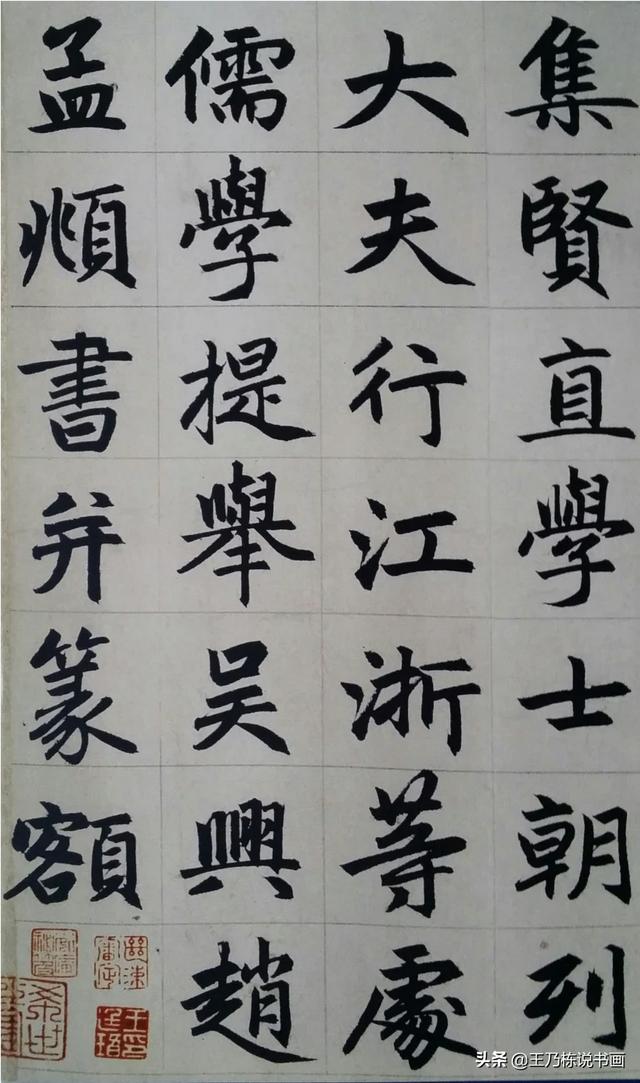 集賢直學士朝列
大夫行江浙等處
儒學提舉吴興趙
孟頫書并篆額
头条 @王乃栋说书画